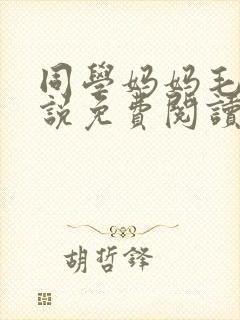 同學媽媽毛
說免費閱讀
胡哲鋒